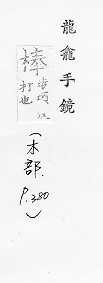 龍龕手鏡
棒
步項反
打也
(木部.
P.380)